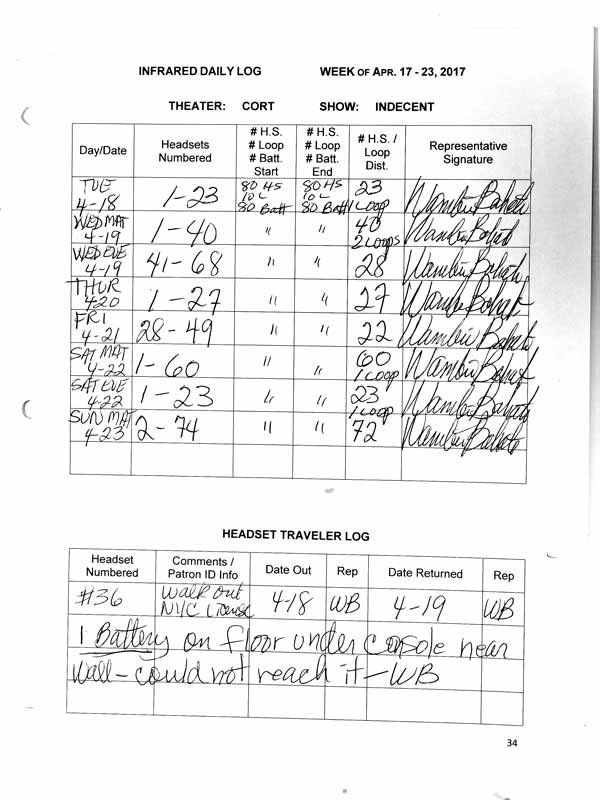 INFRARED DAILY LOG WEEK OF APR. 17 - 23, 2017
THEATER: CORT SHOW: INDECENT
Day/Date Headsets Numbered # H.S. # Loop # Batt. Start # H.S. # Loop # Batt. End # H.S. / Loop Dist. Representative Signature
TUE 4-18 1-23 80 HS 10 L 80 Batt 80 HS 10 L 80 Batt 23 1 Loop Wambui Bahati
WED MAT 4-19 1-40 " " 40 2 Loops Wambui Bahati
WED EVE 4-19 41-68 " " 28 Wambui Bahati
THUR 4-20 1-27 " " 27 Wambui Bahati
FRI 4-21 28-49 " " 22 Wambui Bahati
SAT MAT 4-22 1-60 " " 60 1 Loop Wambui Bahati
SAT EVE 4-22 1-23 " " 23 1 Loop Wambui Bahati
SUN MAT 4-23 2-74 " " 72 Wambui Bahati
HEADSET TRAVELER LOG
Headset Numbered Comments / Patron ID Info Date Out Rep Date Returned Rep
#36 Walk out NYC License 4-18 WB 4-19 WB
1 Battery on floor under console near
wall - could not reach it - WB
34